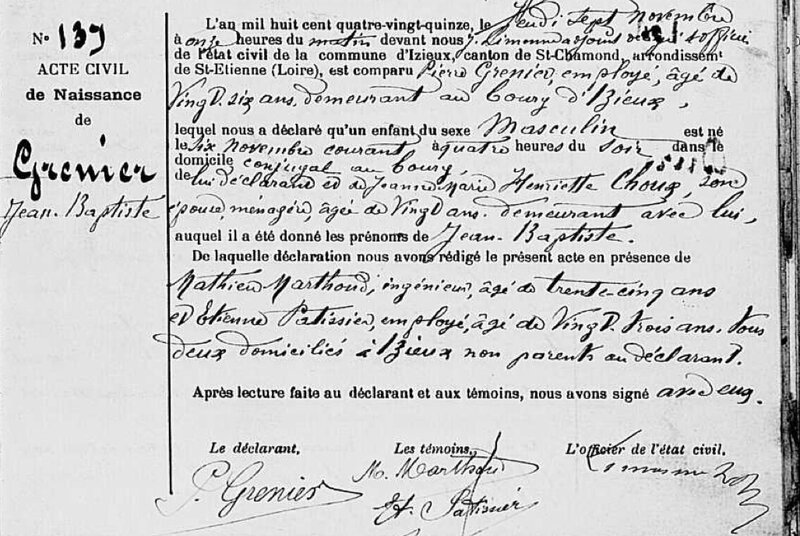 No 139
ACTE CIVIL
de Naissance
de
Grenier
Jean-Baptiste
L'an mil huit cent quatre-vingt-quinze, le Jeudi sept Novembre
à onze heures du matin devant nous J. Limonne adjoint officier
de l'état civil de la commune d'Izieux, canton de St-Chamond, arrondissemt
de St-Etienne (Loire), est comparu Pierre Grenier, employé, âgé de
Vingt-six ans, demeurant au bourg d'Izieux,
lequel nous a déclaré qu'un enfant du sexe Masculin est né
le six novembre courant à quatre heures du soir dans le
domicile conjugal au bourg,
de lui déclarant et de Jeanne Marie Henriette Choux, son
épouse ménagère, âgée de Vingt ans. demeurant avec lui,
auquel il a été donné les prénoms de Jean-Baptiste.
De laquelle déclaration nous avons rédigé le présent acte en présence de
Mathieu Marthoud, ingénieur, âgé de trente-cinq ans
et Etienne Patissier, employé, âgé de Vingt-trois ans. Tous
deux domiciliés à Izieux non parents au déclarant.
Après lecture faite au déclarant et aux témoins, nous avons signé avec eux.
Le déclarant. Les témoins, L'officier de l'état civil.
P. Grenier M. Marthoud
Et. Patissier